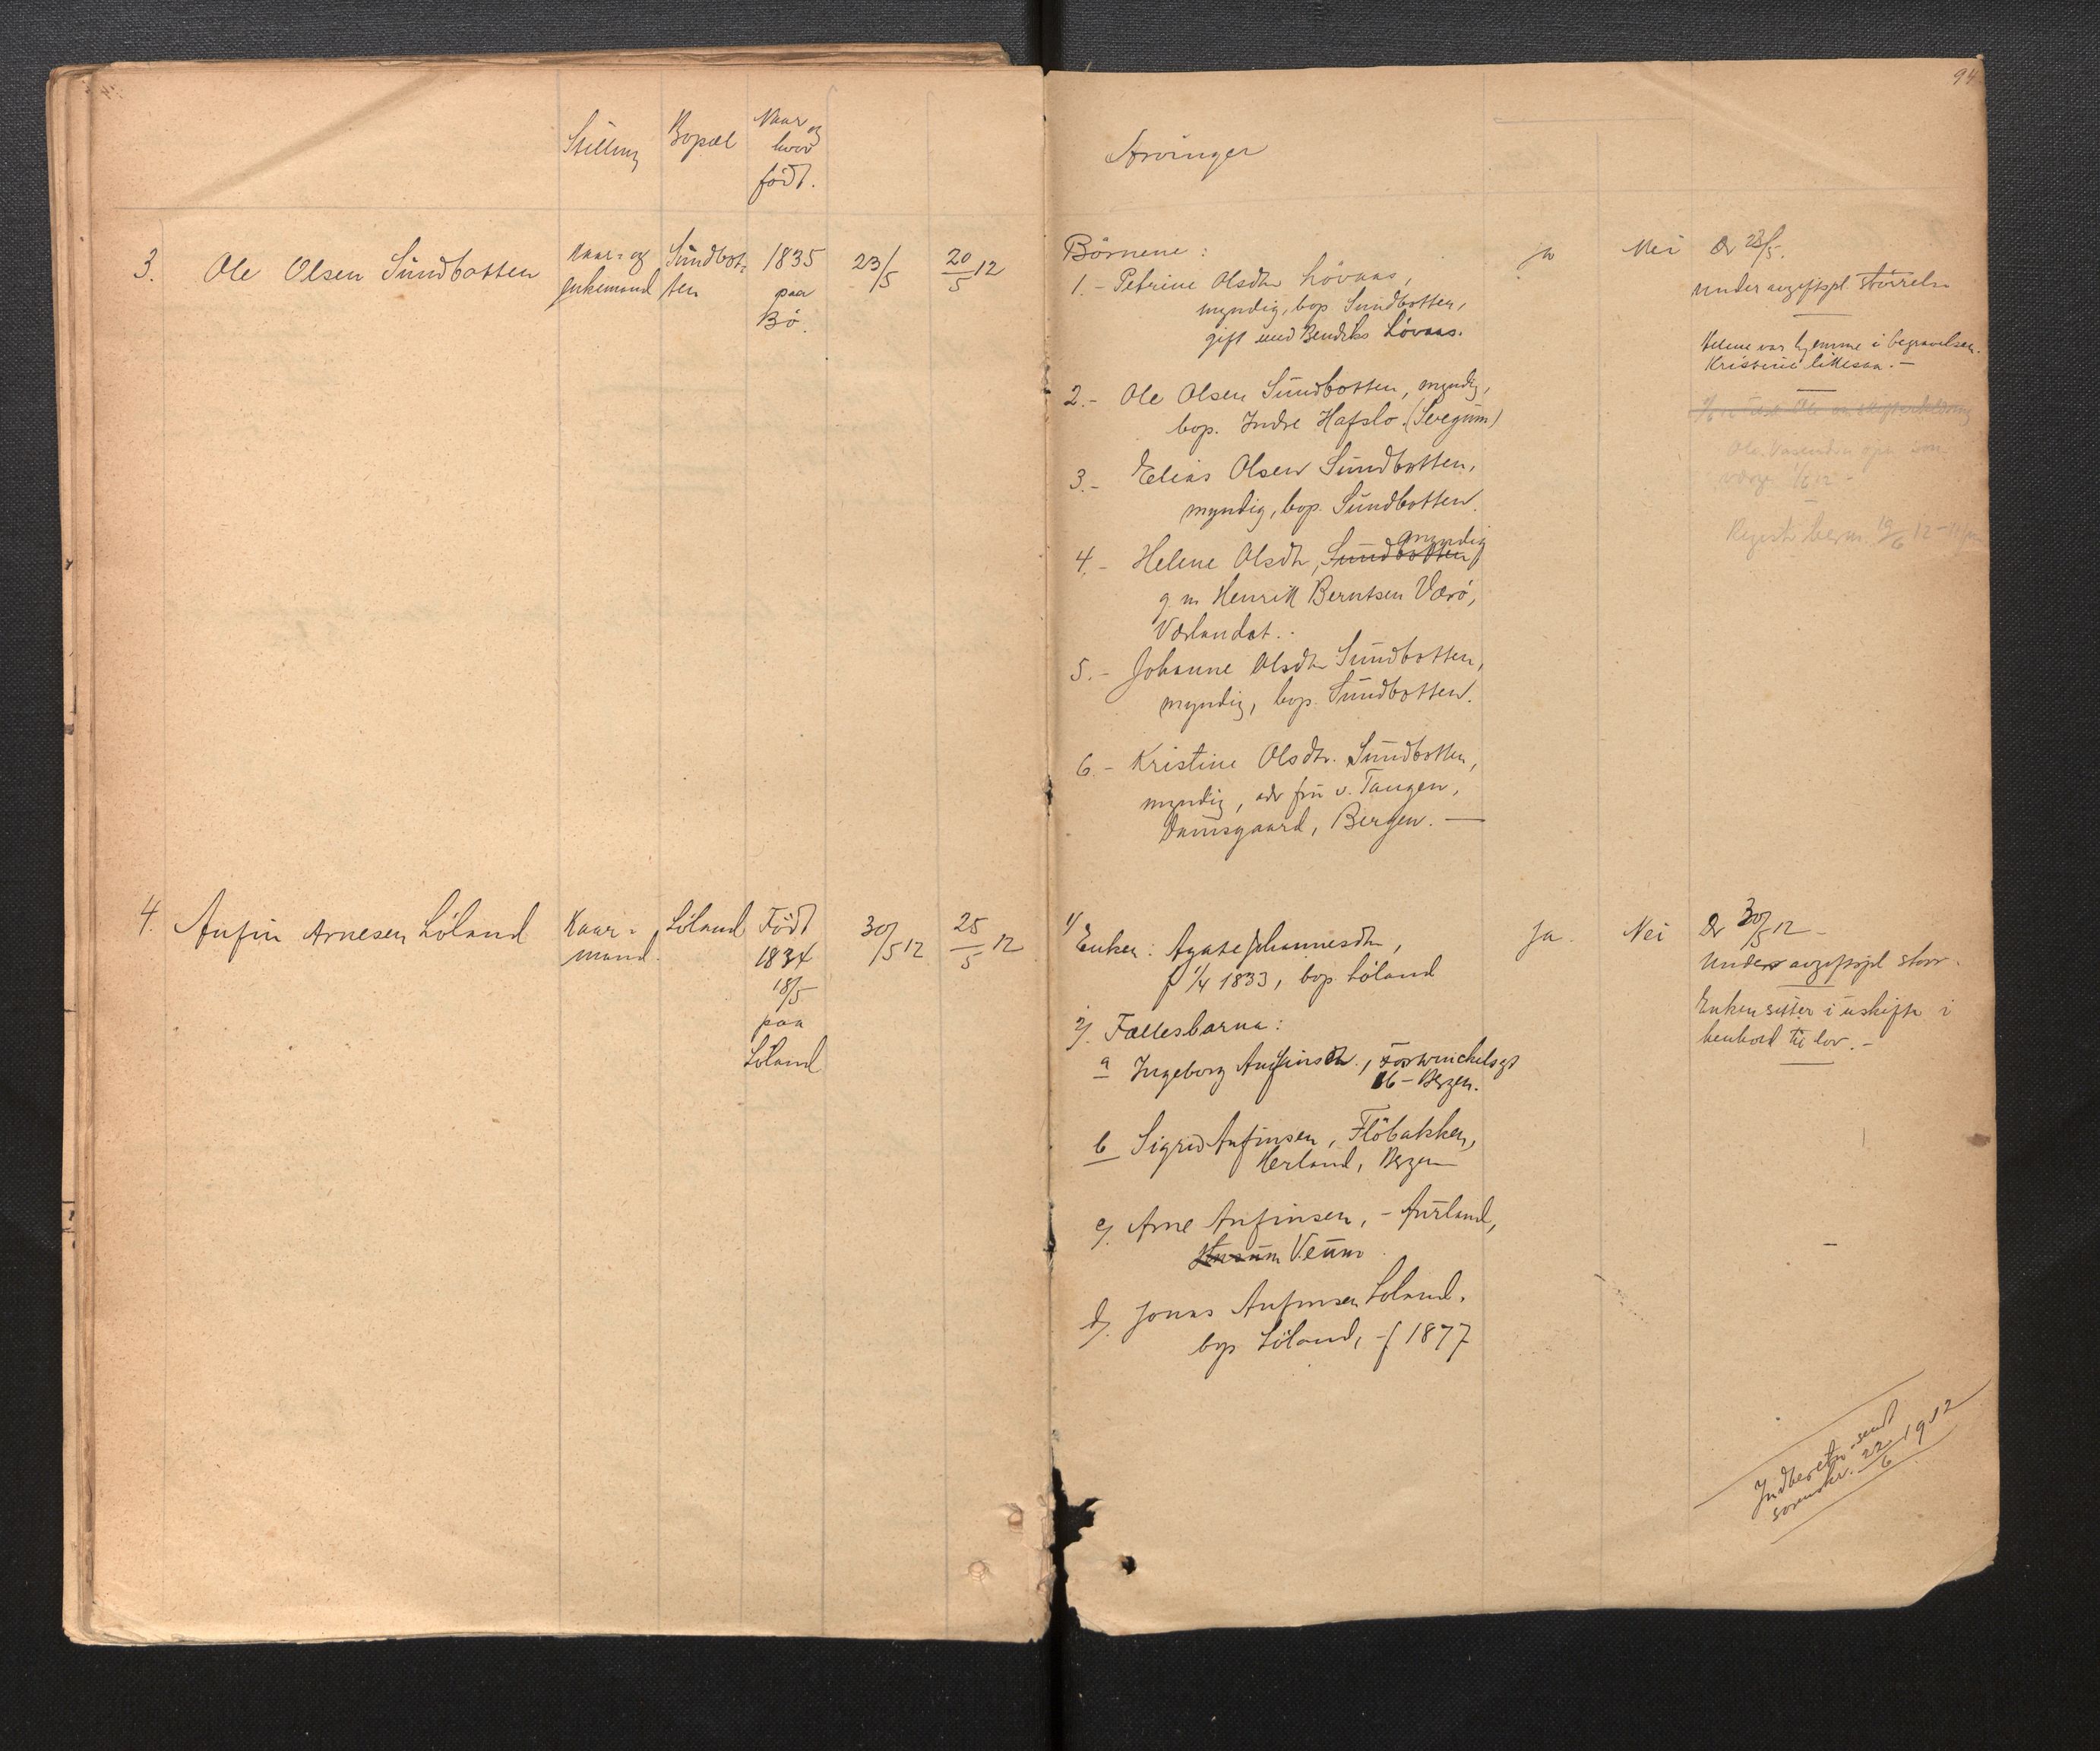 94
Stilling
Bopæl
Naar og
hvor
født.
Arvinger
3.
Ole Olsen Sundbotten
Kaar- og
enkemand
Sundbot-
ten
1835
paa
Bö.
23/5
20/5 12
Börnene:
1.- Petrine Olsdtr Lövaas,
myndig, bop Sundbotten,
gift med Bendiks Lövaas.
2.- Ole Olsen Sundbotten, myndig,
bop. Indre Hafslo.
3.- Elias Olsen Sundbotten,
myndig, bop. Sundbotten.
4.- Helene Olsdtr, Sundbotten myndig
g. m Henrik Berntsen Værö,
Værlandet.
5.- Johanne Olsdtr Sundbotten,
myndig, bop. Sundbotten.
6.- Kristine Olsdtr. Sundbotten,
myndig, adr fru v. Tangen,
Damsgaard, Bergen. —
ja
Nei
Dr 23/5.
under avgiftspl störrelse
Helene var hjemme i begravelsen.
Kristine likesaa. —
værge
Registr. 19/6 12
4.
Anfin Arnesen Löland
Kaar-
mand.
Löland
Født
1834
18/5
paa
Löland
30/5 12
25/5 12
1/ Enken: Agate Johannesdtr,
f 1/4 1833, bop Löland
2/. Fællesbarna:
a Ingeborg Anfinsdtr.,
16 - Bergen.
b Sigrid Anfinsen, Flöbakken,
Herland, Bergen
c/. Arne Anfinsen, - Aurland,
Veum
d/. Jonas Anfinsen Löland.
bop Löland, - f 1877
Ja.
Nei
Dr 30/5 12 -
Under avgiftspl störr.
Enken sitter i uskifte i
henhold til lov. -
Indberetn. sendt
sorenskr. 22/6 1912